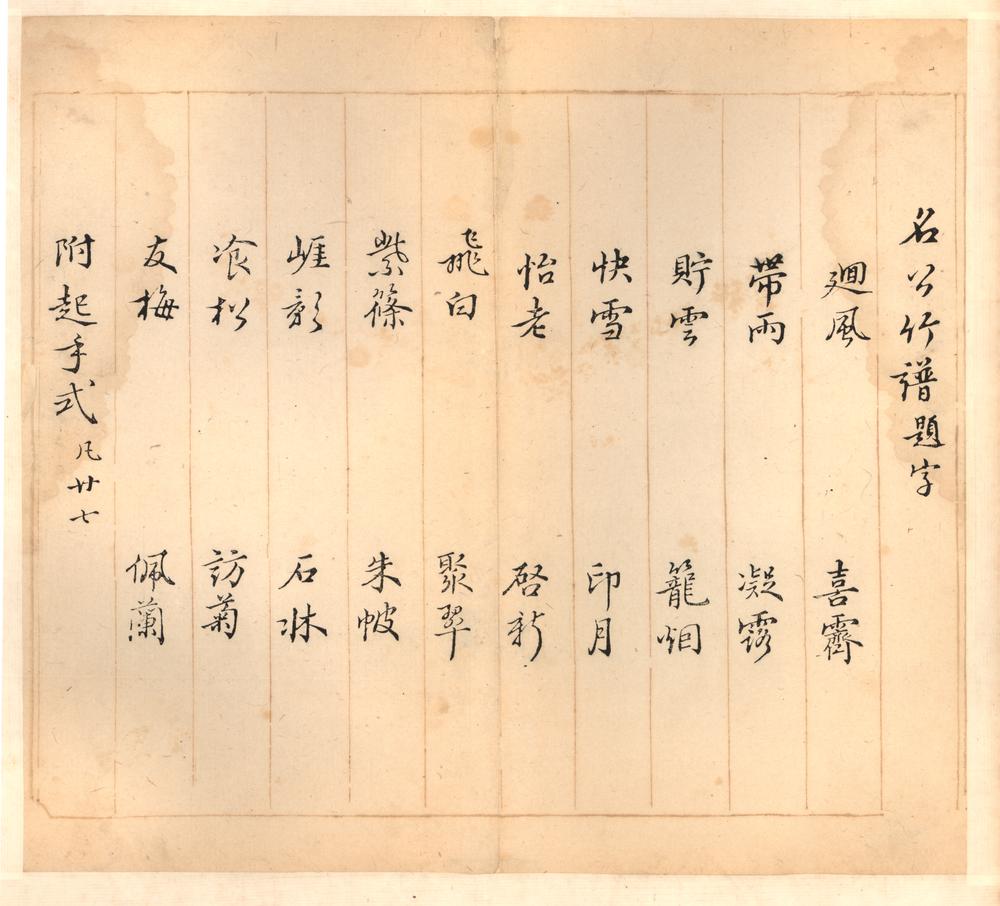 名公竹譜題字
廻風 喜霽
帶雨 凝露
貯雲 籠烟
快雪 印月
怡老 啓新
飛白 聚翠
紫篠 朱帔
崕影 石牀
飡松 訪菊
友梅 佩蘭
附起手式 凡廿七